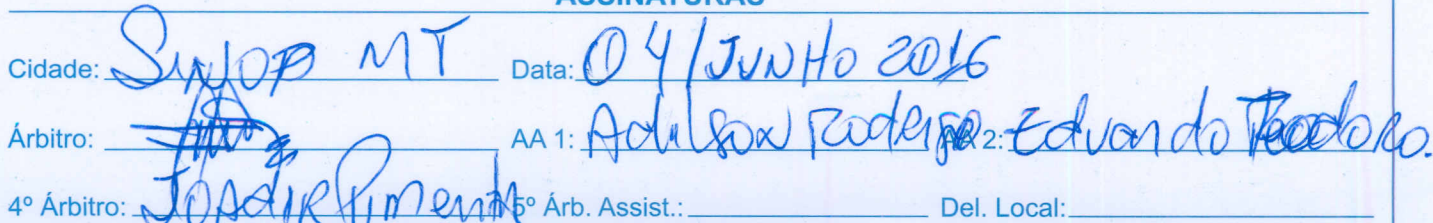 ASSINATURAS
Cidade: SINOP MT Data: 04/JUNHO 2016
Árbitro: AA 1: Adilson Rodrigo AA 2: Eduardo Teodoro.
4º Árbitro: JOADIR Pimenta 5º Árb. Assist.: Del. Local: